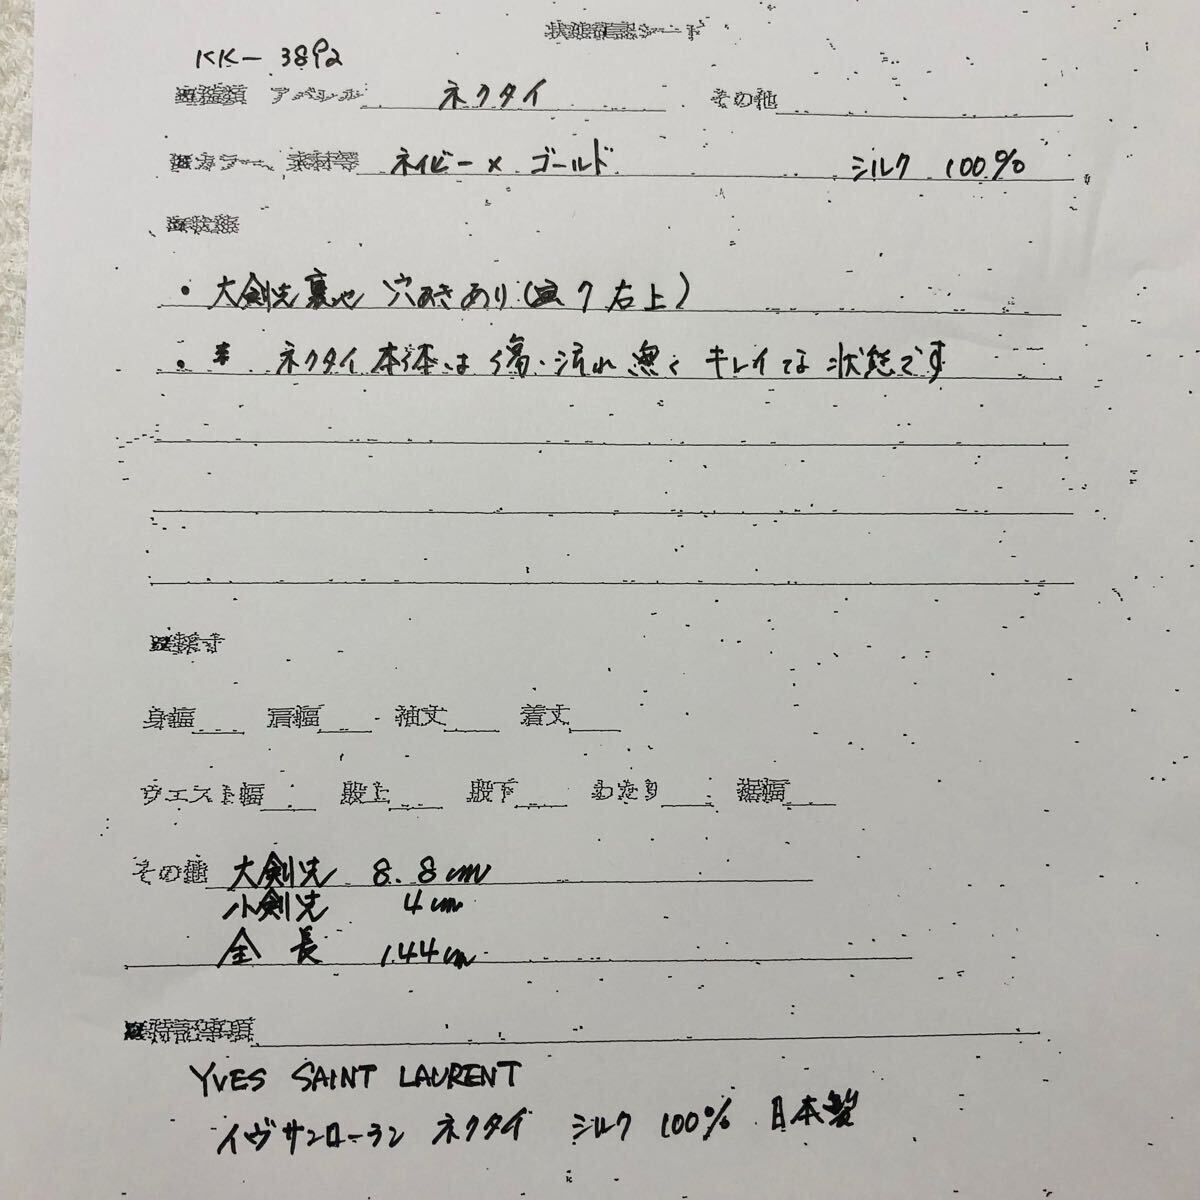 状態確認シート
KK-3892
種類 アパレル ネクタイ その他
カラー、素材等 ネイビー×ゴールド シルク 100%
状態
・大剣先裏地 穴あきあり(タグ右上)
・※ ネクタイ本体は傷・汚れ無く キレイな状態です
採寸
身幅 肩幅 袖丈 着丈
ウエスト幅 股上 股下 わたり 裾幅
その他 大剣先 8.8cm
小剣先 4cm
全長 144cm
特記事項
YVES SAINT LAURENT
イヴサンローラン ネクタイ シルク 100% 日本製